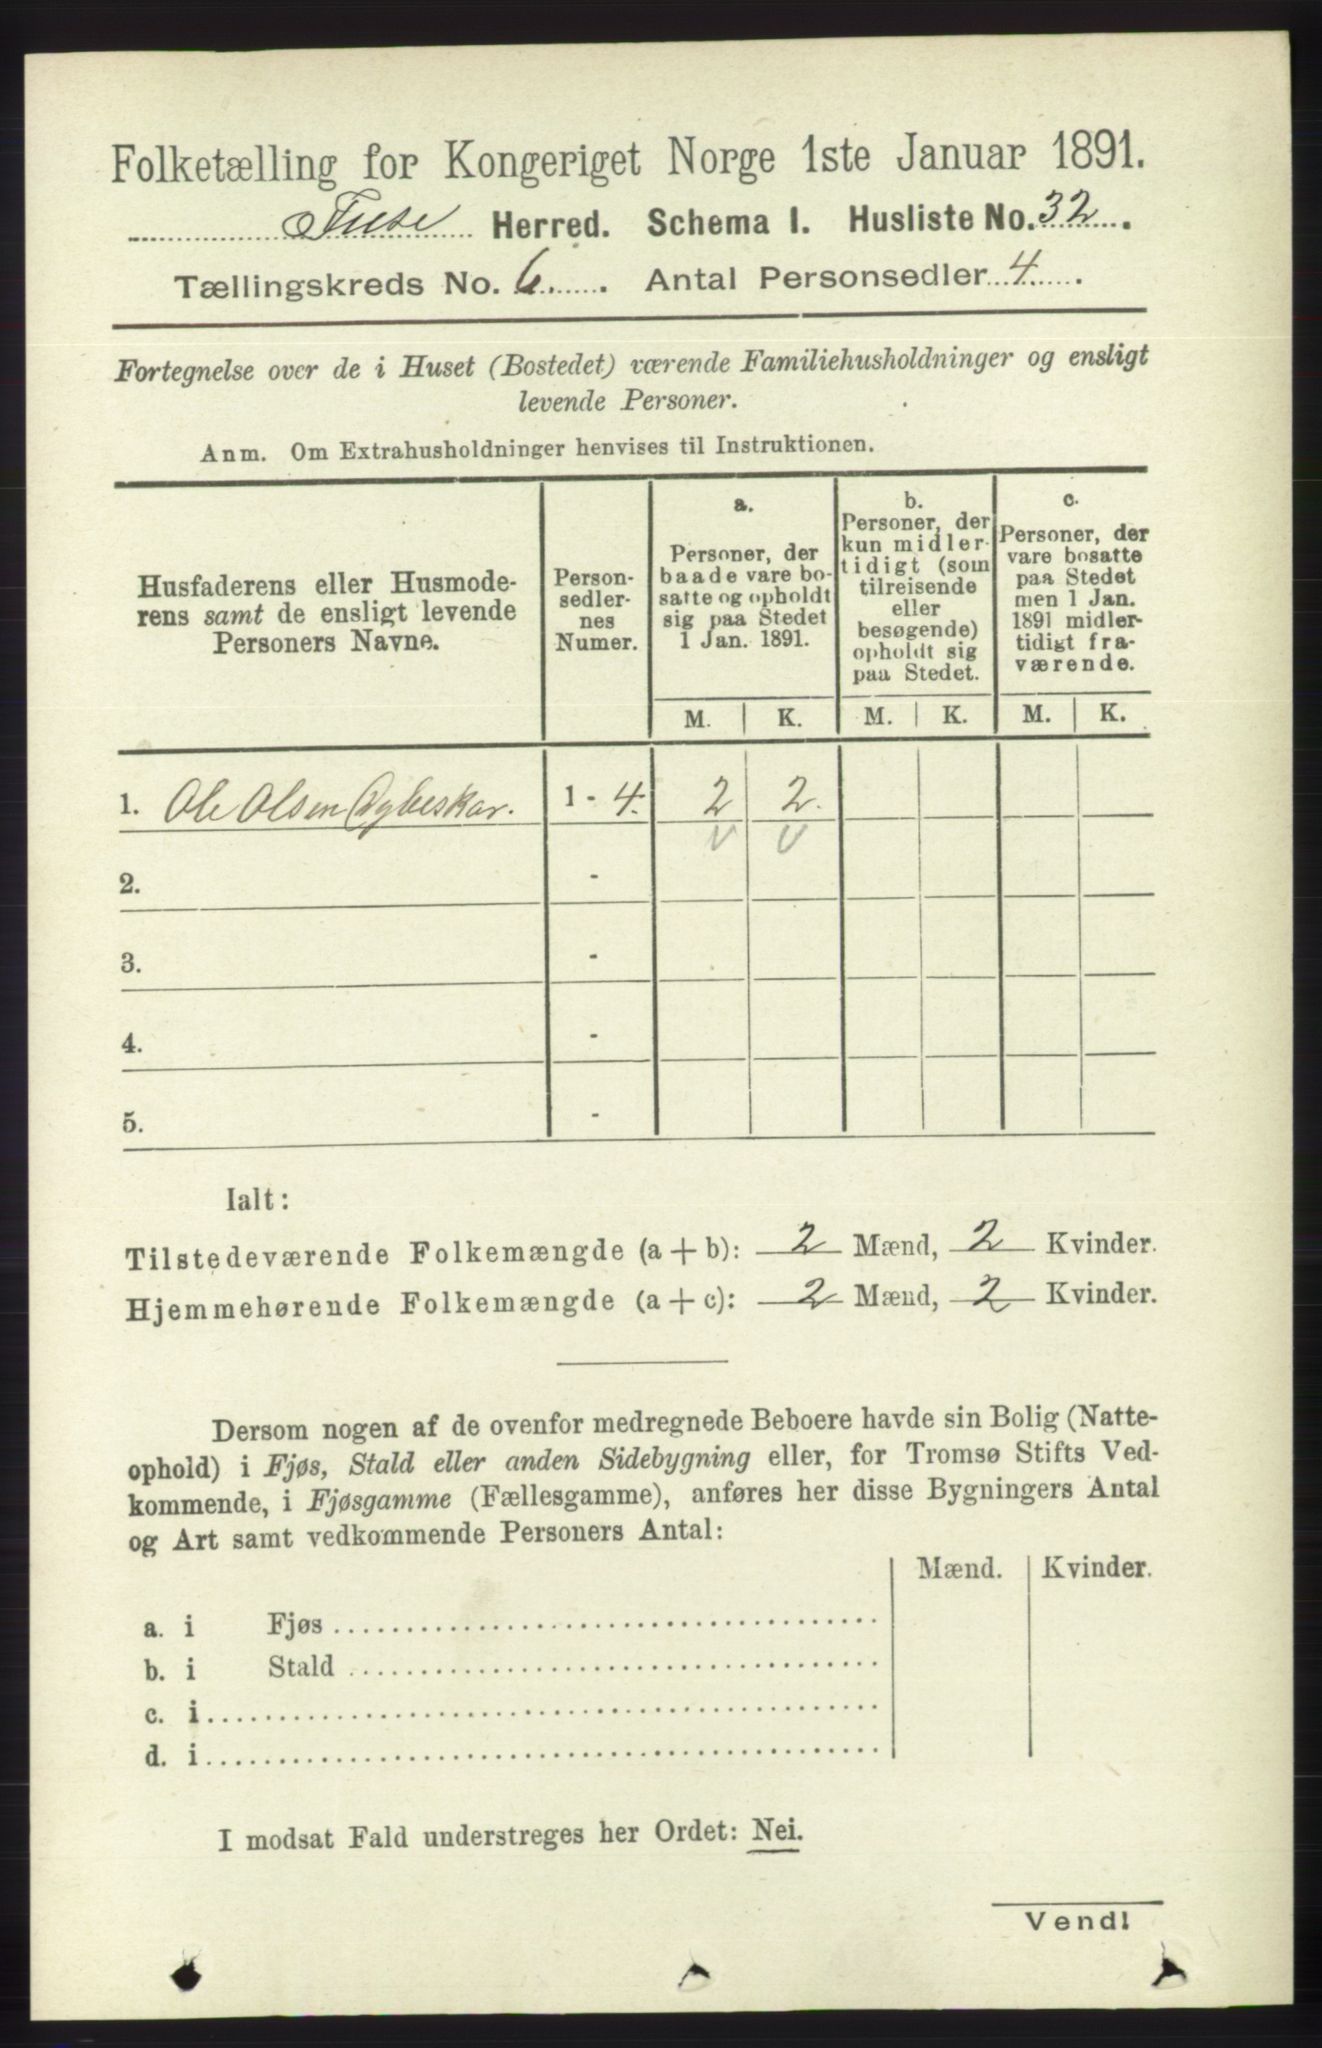 Folketælling for Kongeriget Norge 1ste Januar 1891.
Fuse Herred. Schema I. Husliste No. 32.
Tællingskreds No. 6. Antal Personsedler 4.
Fortegnelse over de i Huset (Bostedet) værende Familiehusholdninger og ensligt
levende Personer.
Anm. Om Extrahusholdninger henvises til Instruktionen.
Husfaderens eller Husmode-
rens samt de ensligt levende
Personers Navne.
Person-
sedler-
nes
Numer.
a.
Personer, der
baade vare bo-
satte og opholdt
sig paa Stedet
1 Jan. 1891.
b.
Personer, der
kun midler-
tidigt (som
tilreisende
eller
besøgende)
opholdt sig
paa Stedet.
c.
Personer, der
vare bosatte
paa Stedet
men 1 Jan.
1891 midler-
tidigt fra-
værende.
M. K. M. K. M. K.
1. Ole Olsen Dybeskar. 1 - 4. 2 2.
2. -
3. -
4. -
5. -
Ialt:
Tilstedeværende Folkemængde (a + b): 2 Mænd, 2 Kvinder.
Hjemmehørende Folkemængde (a + c): 2 Mænd, 2 Kvinder.
Dersom nogen af de ovenfor medregnede Beboere havde sin Bolig (Natte-
ophold) i Fjøs, Stald eller anden Sidebygning eller, for Tromsø Stifts Ved-
kommende, i Fjøsgamme (Fællesgamme), anføres her disse Bygningers Antal
og Art samt vedkommende Personers Antal:
Mænd. Kvinder.
a. i Fjøs
b. i Stald
c. i
d. i
I modsat Fald understreges her Ordet: Nei.
Vend!